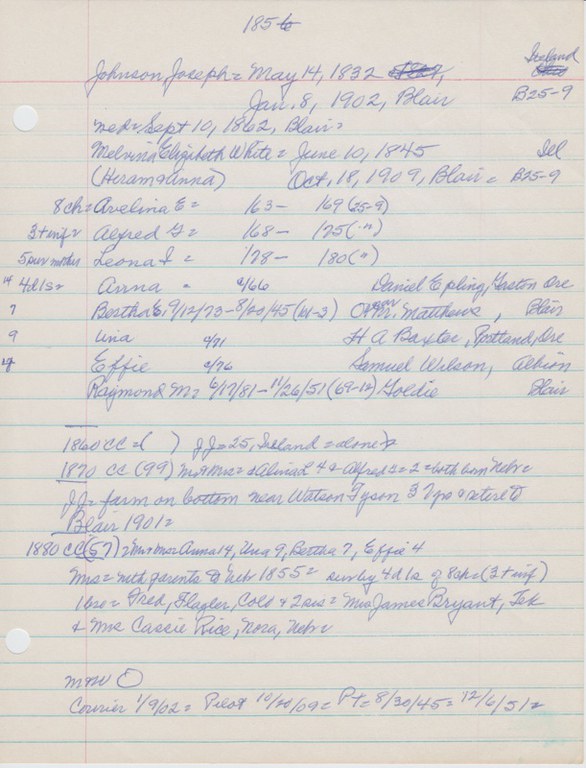 1856
Johnson, Joseph = May 14, 1832 Ireland
Jan. 8, 1902, Blair B25-9
med = Sept 10, 1862, Blair =
Melvina Elizabeth White = June 10, 1845 Ill
(Hiram & Anna) Oct, 18, 1909, Blair = B25-9
8ch = Avelina E = 163 - 169 (25-9)
3 + inf = Alfred G = 168 - 175 (")
5 surv mother Leona I = 178 - 180 (")
14 4d1s = Anna = c/66 Daniel Epling, Gaston Ore
7 Bertha E, 9/12/73 - 8/23/45 (61-3) Matthews, Blair
9 Una c/71 H A Baxter, Portland, Ore
4 Effie c/76 Samuel Wilson, Albion
Raymond M = 6/17/81 - 11/26/51 (69-12) Goldie Blair
1860 CC = ( ) JJ = 25, Ireland = alone
1870 CC (99) Mr & Mrs = & Alvina L 4 & Alfred 2 = both born Nebr =
JJ = farm on bottom near Watson Tyson 3 7 yrs & retire to
Blair 1901 =
1880 CC (57) = Mr & Mrs Anna 14, Una 9, Bertha 7, Effie 4
Mrs = with parents to Nebr 1855 = surv by 4d1s of 8ch = (3 + inf)
1 bro = Fred, Flagler, Colo & 2 sis = Mrs James Bryant, Tek
& Mrs Cassie Rice, Nora, Nebr =
Courier 1/9/02 = Pilot 10/20/09 = PT = 8/30/45 = 12/6/51 =